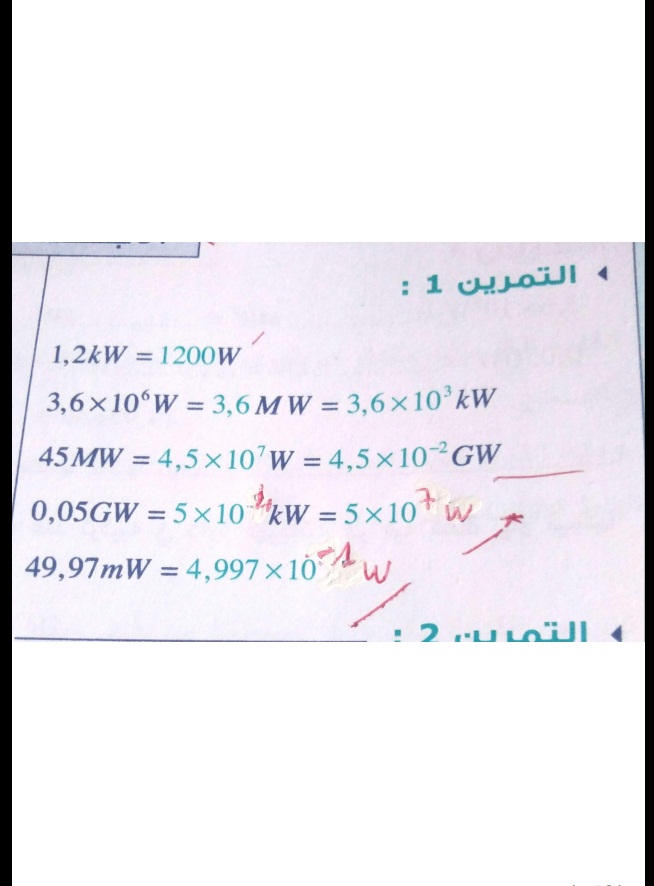 التمرين 1 :
1,2kW = 1200W
3,6×10⁶W = 3,6MW = 3,6×10³kW
45MW = 4,5×10⁷W = 4,5×10⁻²GW
0,05GW = 5×10⁴kW = 5×10⁷W
49,97mW = 4,997×10⁻¹W
التمرين 2 :